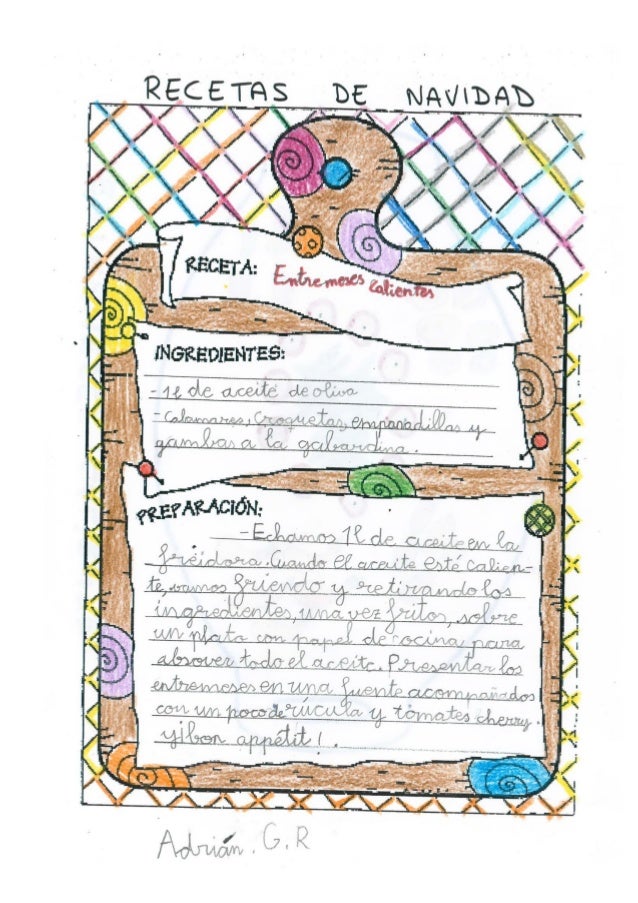 RECETAS DE NAVIDAD
RECETA: Entremeses calientes
INGREDIENTES:
- 1l de aceite de oliva
- Calamares, croquetas, empanadillas y
gambas a la gabardina.
PREPARACIÓN:
- Echamos 1l de aceite en la
freidora. Cuando el aceite esté calien-
te, vamos friendo y retirando los
ingredientes, una vez fritos, sobre
un plato con papel de cocina para
absover todo el aceite. Presentar los
entremeses en una fuente acompañados
con un poco de rúcula y tomates cherry.
y ¡bon appétit!.
Adrián. G.R